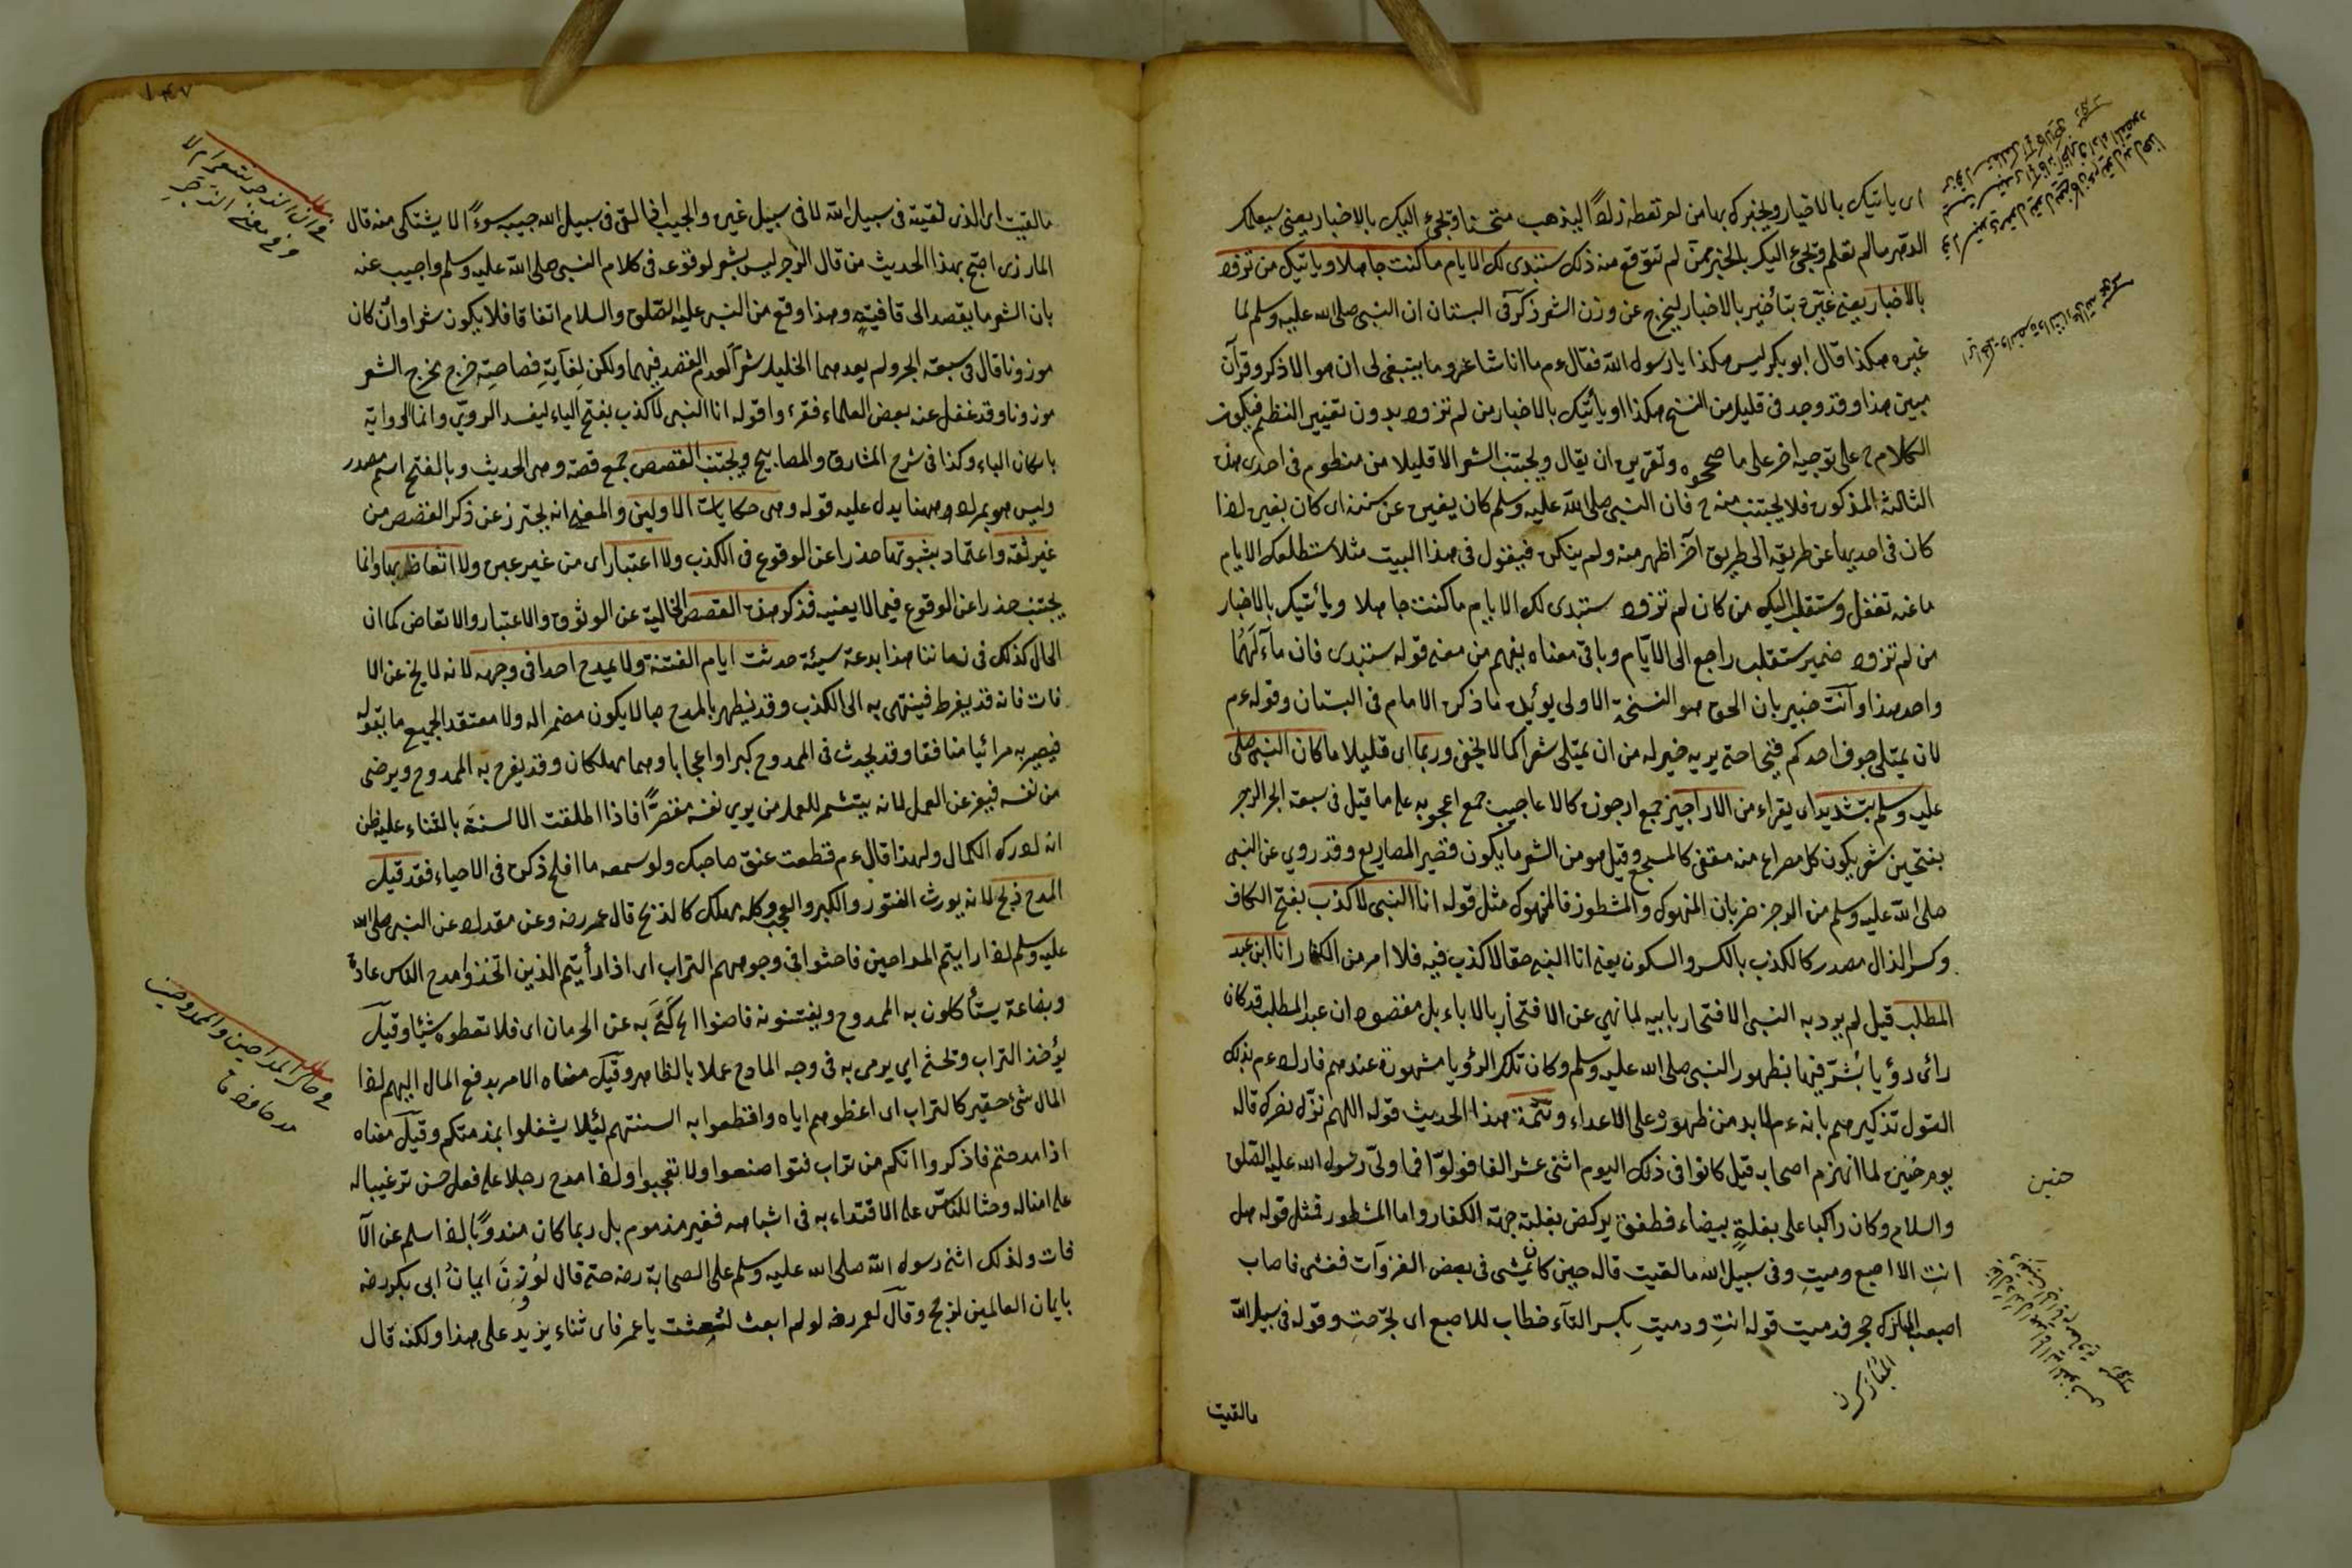 اى ياتيك بالاخبار ويخبرك بها من لم تعطه زادا ليذهب متجسسا ويجئ اليك بالاخبار يعنى سيعلمك
الدهر مالم تعلم ويجئ اليك بالخبر ممن لم تتوقع منه ذلك ستبدى لك الايام ما كنت جاهلا وياتيك من تزود
بالاخبار يعنى غيّره بتأخير بالاخبار ليخرج عن وزن الشعر ذكر فى البستان ان النبى صلى الله عليه وسلم لما
غيره هكذا قال ابو بكر ليس هكذا يا رسول الله فقال ءم ما انا شاعر وما ينبغى لى ان هو الا ذكر وقرآن
مبين هذا وقد وجد فى قليل من النسخ هكذا او يأتيك بالاخبار من لم تزود بدون تغيير النظم فيكون
الكلام ح على توجيه اخر على ما صححوه وتقريره ان يقال ويجتنب الشعر الا قليلا من منظوم فى احدى هذه
الثالثة المذكورة فلا يجتنب منه ح فان النبى صلى الله عليه وسلم كان يغيره عن سننه اى كان يغيره اذا
كان فى احديها عن طريقه الى طريق آخر اظهر منه ولم ينكره فيقول فى هذا البيت مثلا ستطلعك الايام
ما عنه تغفل وستقلب اليك من كان لم تزود ستبدى لك الايام ما كنت جاهلا ويأتيك بالاخبار
من لم تزود ضمير ستقلب راجع الى الايّام وباقى معناه يفهم من معنى قوله ستبدى فان مآلهما
واحد هذا وانت خبير بان الحق هو النسخة الاولى يؤيده ما ذكره الامام فى البستان وقوله ءم
لان يمتلى جوف احدكم قيحا حتى يريه خير له من ان يمتلى شعرا كما لا يخفى وربما اى قليلا ما كان النبى صلى
عليه وسلم يتشديد اى يقراء من الاراجيز جمع ارجوزة كالاعاجيب جمع اعجوبه على ما قيل فى سبعة ابحر الرجز
بفتحتين شعر يكون كل مصراع منه مقفى كالمسجع وقيل هو من الشعر ما يكون قصير المصاريع وقد روى عن النبى
صلى الله عليه وسلم من الرجز ضربان المنهوك والمشطور فالمنهوك مثل قوله انا النبى لا كذب بفتح الكاف
وكسر الذال مصدر كالكذب بالكسر والسكون يعنى انا النبى حقا لا كذب فيه فلا افر من الكفار انا ابن عبد
المطلب قيل لم يرد به النبى الافتخار بابيه لما نهى عن الافتخار بالاباء بل مقصوده ان عبد المطلب قد كان
رائ رؤيا بشّر فيها بظهور النبى صلى الله عليه وسلم وكان تلك الرؤيا مشهورة عندهم فاراد ءم بذلك
القول تذكيرهم بانه ءم لابد من ظهوره على الاعداء وتتمة هذا الحديث قوله اللهم نزّل نصرك قاله
يوم حنين لما انهزم اصحابه قيل كانوا فى ذلك اليوم اثنى عشر الفا فولوّا فما ولىّ رسول الله عليه الصلوة
والسلام وكان راكبا على بغلة بيضاء فطفق يركض بغلته جهة الكفار واما المشطور فمثل قوله هل
انتِ الا اصبع دميتِ وفى سبيل الله ما لقيت قاله حين كان يمشى فى بعض الغزوات فعثر فاصاب
اصبعه المباركه حجر فدميت قوله انتِ ودميتِ بكسر التاء خطاب للاصبع اى لجرّحتِ وقوله فى سبيل الله
المباركة
ما لقيت
حنين
١٤٧
ما لقيت اى الذى لقيته فى سبيل الله لا فى سبيل غيره والحبيب اذا لقى فى سبيل الله حبيب سوءًا لا يشتكى منه قال
المازرى احتج بهذا الحديث من قال الرجز ليس بشعر لوقوعه فى كلام النبى صلى الله عليه وسلم واجيب عنه
بان الشعر ما يقصد الى قافيته وهذا وقع من النبى عليه الصلوة والسلام اتفاقا فلا يكون شعرا وان كان
موزونا قال فى سبعة ابحر ولم يعدهما الخليل شعرا لعدم القصد فيهما ولكن لغاية فصاحته خرج مخرج الشعر
موزونا وقد غفل عنه بعض العلماء فقرء واقوله انا النبى لا كذب بفتح الباء ليفسد الروىّ وانما الرواية
باسكان الباء وكذا فى شرح المشارق والمصابيح ويجتنب القصص جمع قصة وهى الحديث وبالفتح اسم مصدر
وليس هو بمراد ههنا يدل عليه قوله وهى حكايات الاولين والمعنى انه يحترز عن ذكر القصص من
غير ثقة واعتماد بثبوتها حذرا عن الوقوع فى الكذب ولا اعتبار اى من غير عبرة ولا اتعاظ بها وانما
يجتنب حذرا عن الوقوع فيما لا يعنيه فذكر هذه القصص الخالية عن الوثوق والاعتبار والاتعاض كما ان
الحال كذلك فى زماننا هذا بدعة سيئة حدثت ايام الفتنة ولا يمدح احدا فى وجهه لانه لا يخ عن الا
فات فانه قد يفرط فينتهى به الى الكذب وقد يظهر بالمدح حبا لا يكون مضمرا له ولا معتقد الجميع ما يقوله
فيصير به مرائيا منافقا وقد يحدث فى الممدوح كبرا واعجابا وهما مهلكان وقد يفرح به الممدوح ويرضى
من نفسه فيفتر عن العمل لانه يتشمر للعمل من يرى نفسه مقصرًّا فاذا اطلقت الالسنة بالثناء عليه ظن
انه ادرك الكمال ولهذا قال ءم قطعت عنق صاحبك ولو سمعه ما افلح ذكره فى الاحياء فقد قيل
المدح ذبح لانه يورث الفتور والكبر والعجب وكله مهلك كالذبح قال عمر رضه وعن مقداد عن النبى صلى الله
عليه وسلم اذا رايتم المداحين فاحثوا فى وجوههم التراب اى اذا رأيتم الذين اتخذوا مدح الناس عادة
وبضاعة يستأكلون به الممدوح ويفتنونه فاحثوا الخ كَنّى به عن الحرمان اى فلا تعطوه شيئا وقيل
يؤخذ التراب ويحثى اى يرمى به فى وجه المادح عملا بالظاهر وقيل معناه الامر بدفع المال اليهم اذا
المال شئ حقير كالتراب اى اعطوهم اياه واقطعوا به السنتهم لئلا يشغلوا بمذمتكم وقيل معناه
اذا مدحتم فاذكروا انكم من تراب فتواضعوا ولا تعجبوا واذا مدح رجلا على فعل حسن ترغيبا له
على امثاله وحثا للناس على الاقتداء به فى اشباهه فغير مذموم بل ربما كان مندوبًا اذا سلم عن الآ
فات ولذلك اثنى رسول الله صلى الله عليه وسلم على الصحابة رضه حتى قال لو وُزِنَ ايمانُ ابى بكر رضه
بايمان العالمين لرجح وقال لعمر رضه لو لم ابعث لبُعِثت يا عمر فاى ثناء يزيد على هذا ولكنه قال